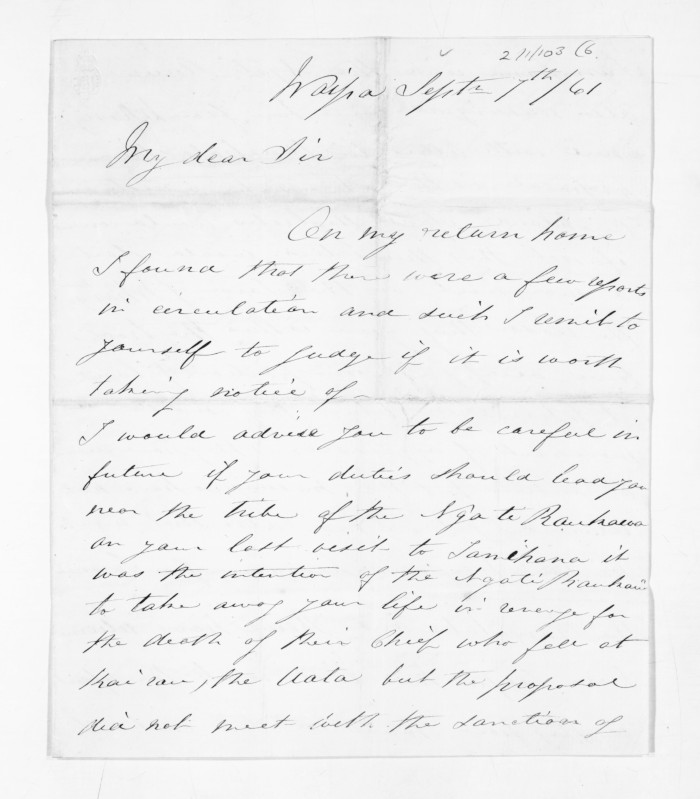 2/1/103 C6.
Waipa Septr 7th/61
My dear Sir
On my return home
I found that there were a few reports
in circulation and such I remit to
yourself to judge if it is worth
taking notice of -
I would advise you to be careful in
future if your duties should lead you
near the tribe of the Ngati Raukawa
on your last visit to Tamihana it
was the intention of the Ngati Raukawa
to take away your life in revenge for
the death of their Chief who fell at
Kairau, the Uata but the proposal
did not meet with the sanction of